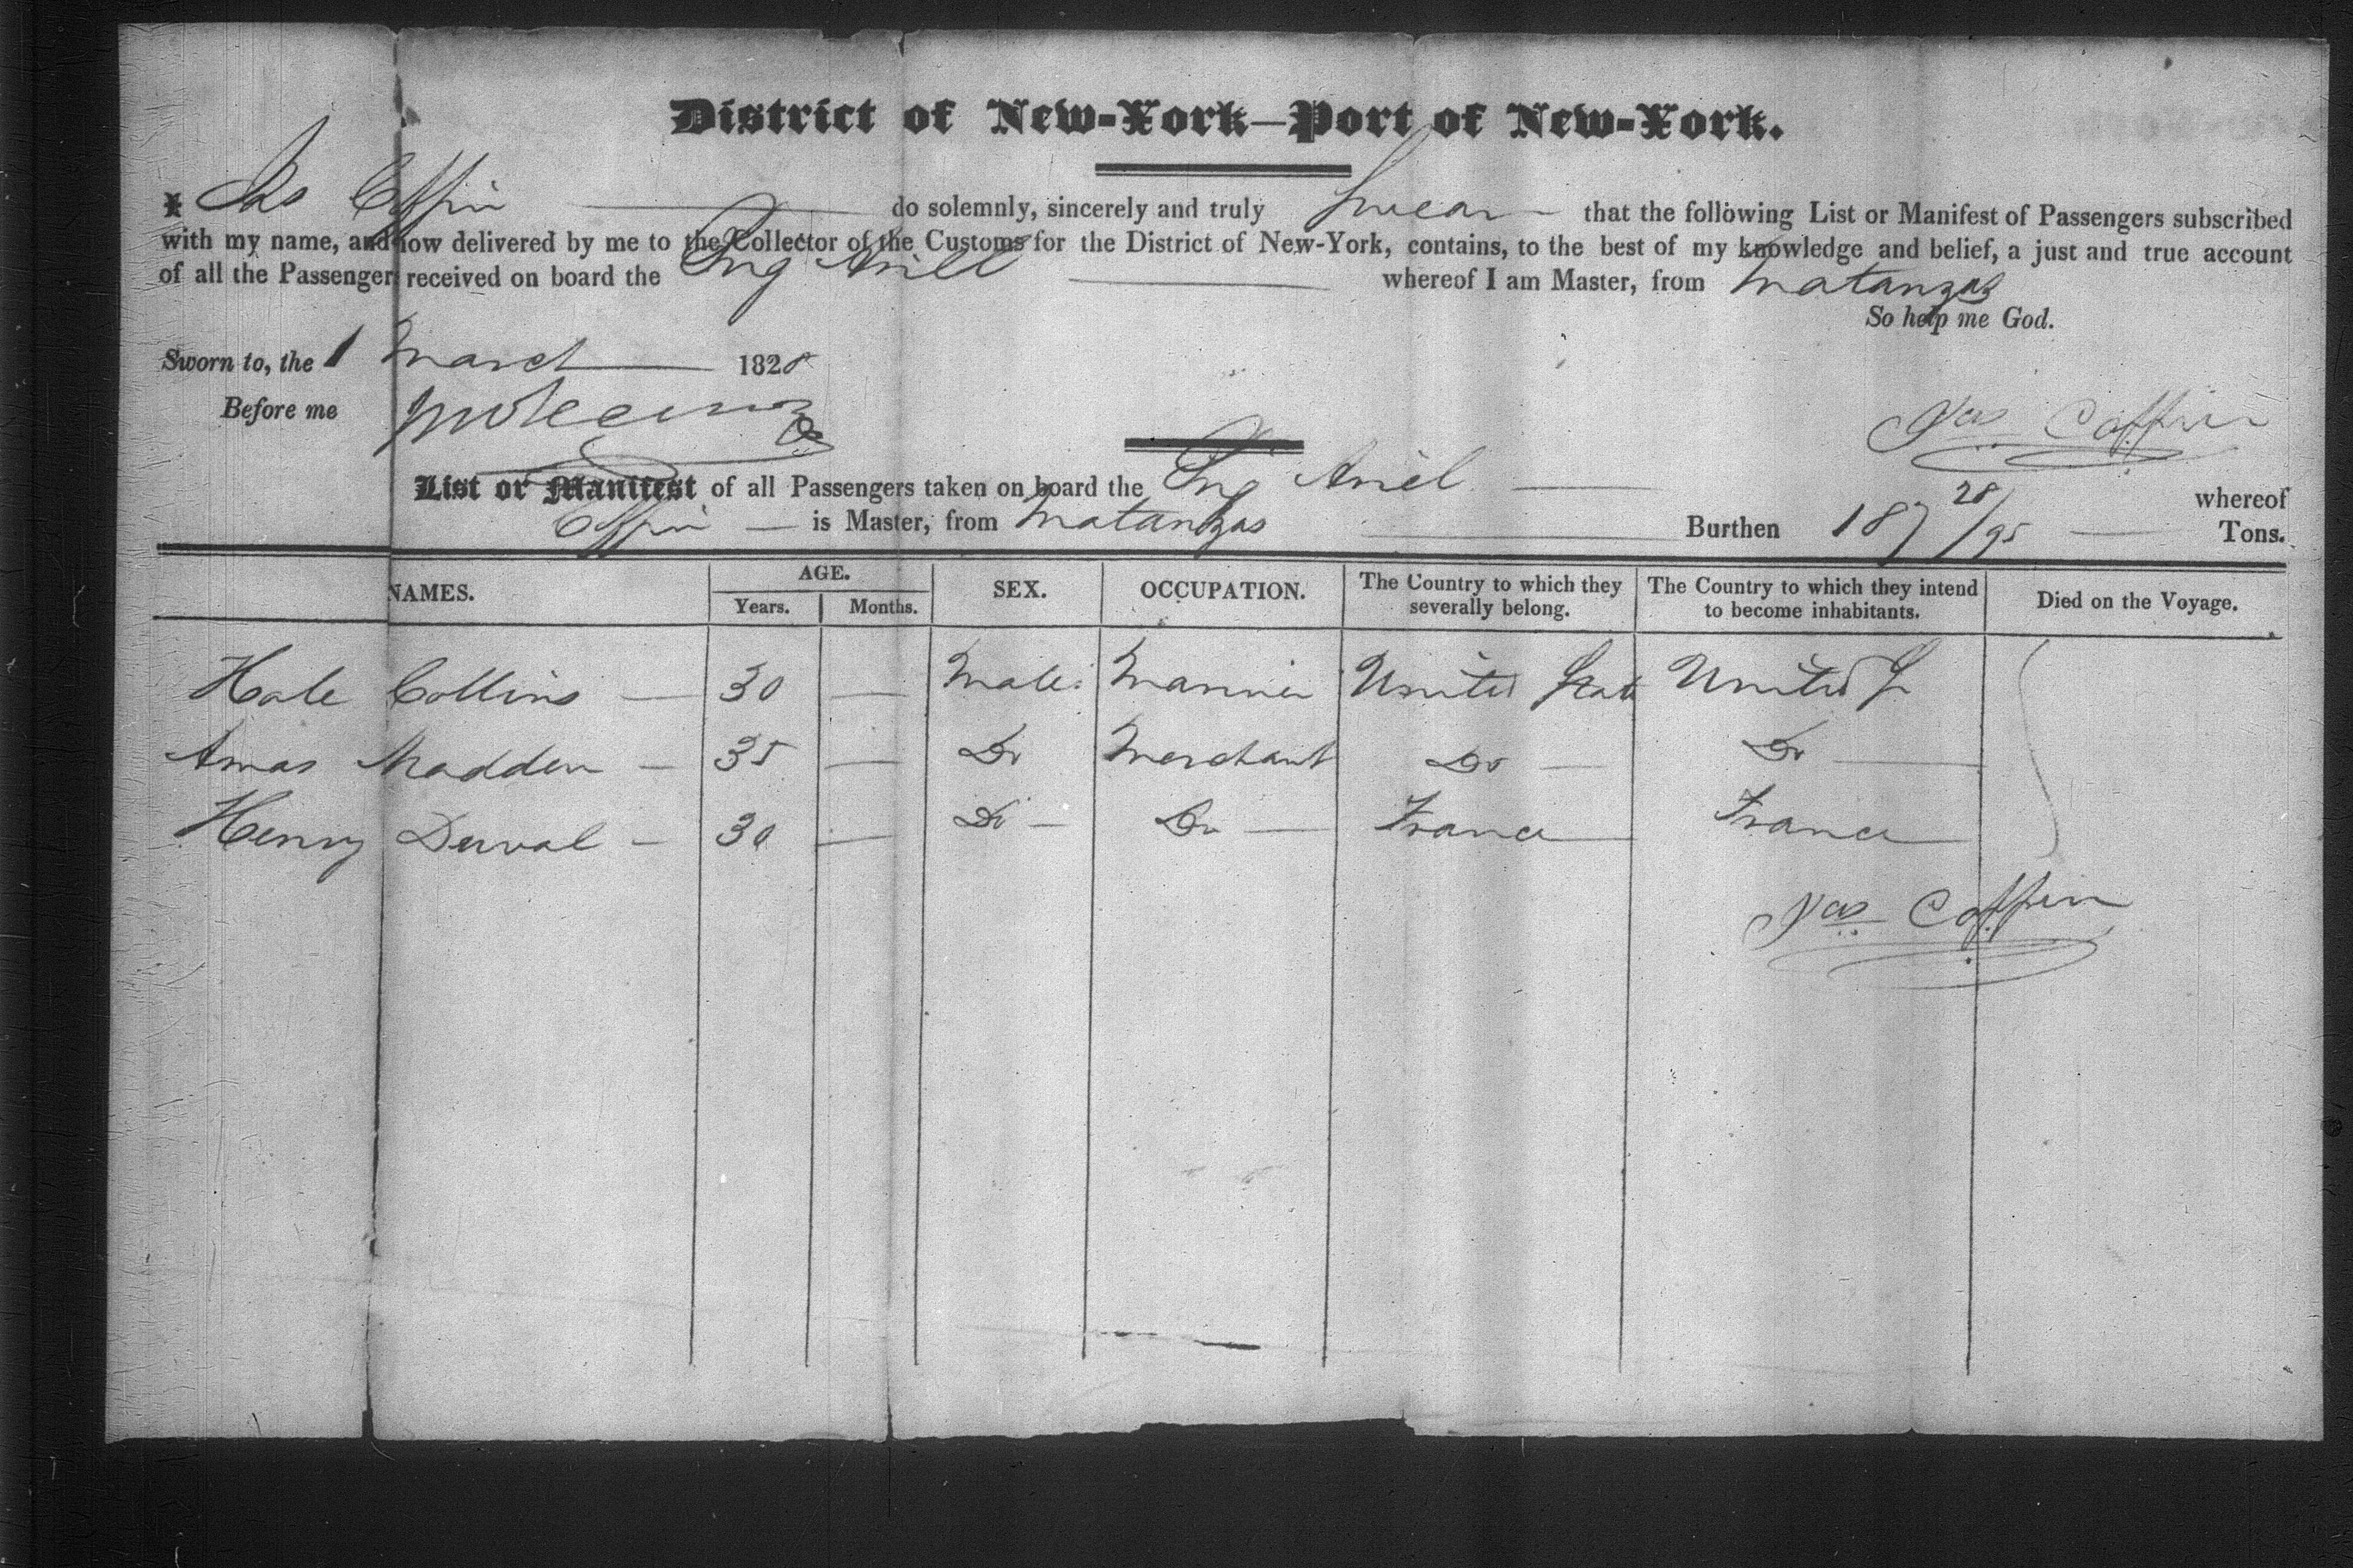 District of New-York—Port of New-York.
I Jas Coffin do solemnly, sincerely and truly Swear that the following List or Manifest of Passengers subscribed
with my name, and now delivered by me to the Collector of the Customs for the District of New-York, contains, to the best of my knowledge and belief, a just and true account
of all the Passengers received on board the Brig Ariel whereof I am Master, from Matanzas
So help me God.
Sworn to, the 1 March 1828
Before me
Jas Coffin
List or Manifest of all Passengers taken on board the Brig Ariel whereof
Coffin is Master, from Matanzas Burthen 187 28/95 Tons.
NAMES. AGE. Years. Months. SEX. OCCUPATION. The Country to which they severally belong. The Country to which they intend to become inhabitants. Died on the Voyage.
Hale Collins — 30 — Male Mariner United State United S
Amas Madden — 35 — Do Merchant Do — Do —
Henry Duval — 30 — Do — Do — France France
Jas Coffin